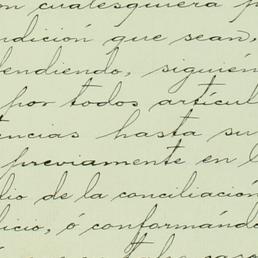 on cualesquiera p
ndición que sean,
endiendo, siguién
por todos artícul
encias hasta su
previamente en l
lio de la conciliación
licio, ó conformándo